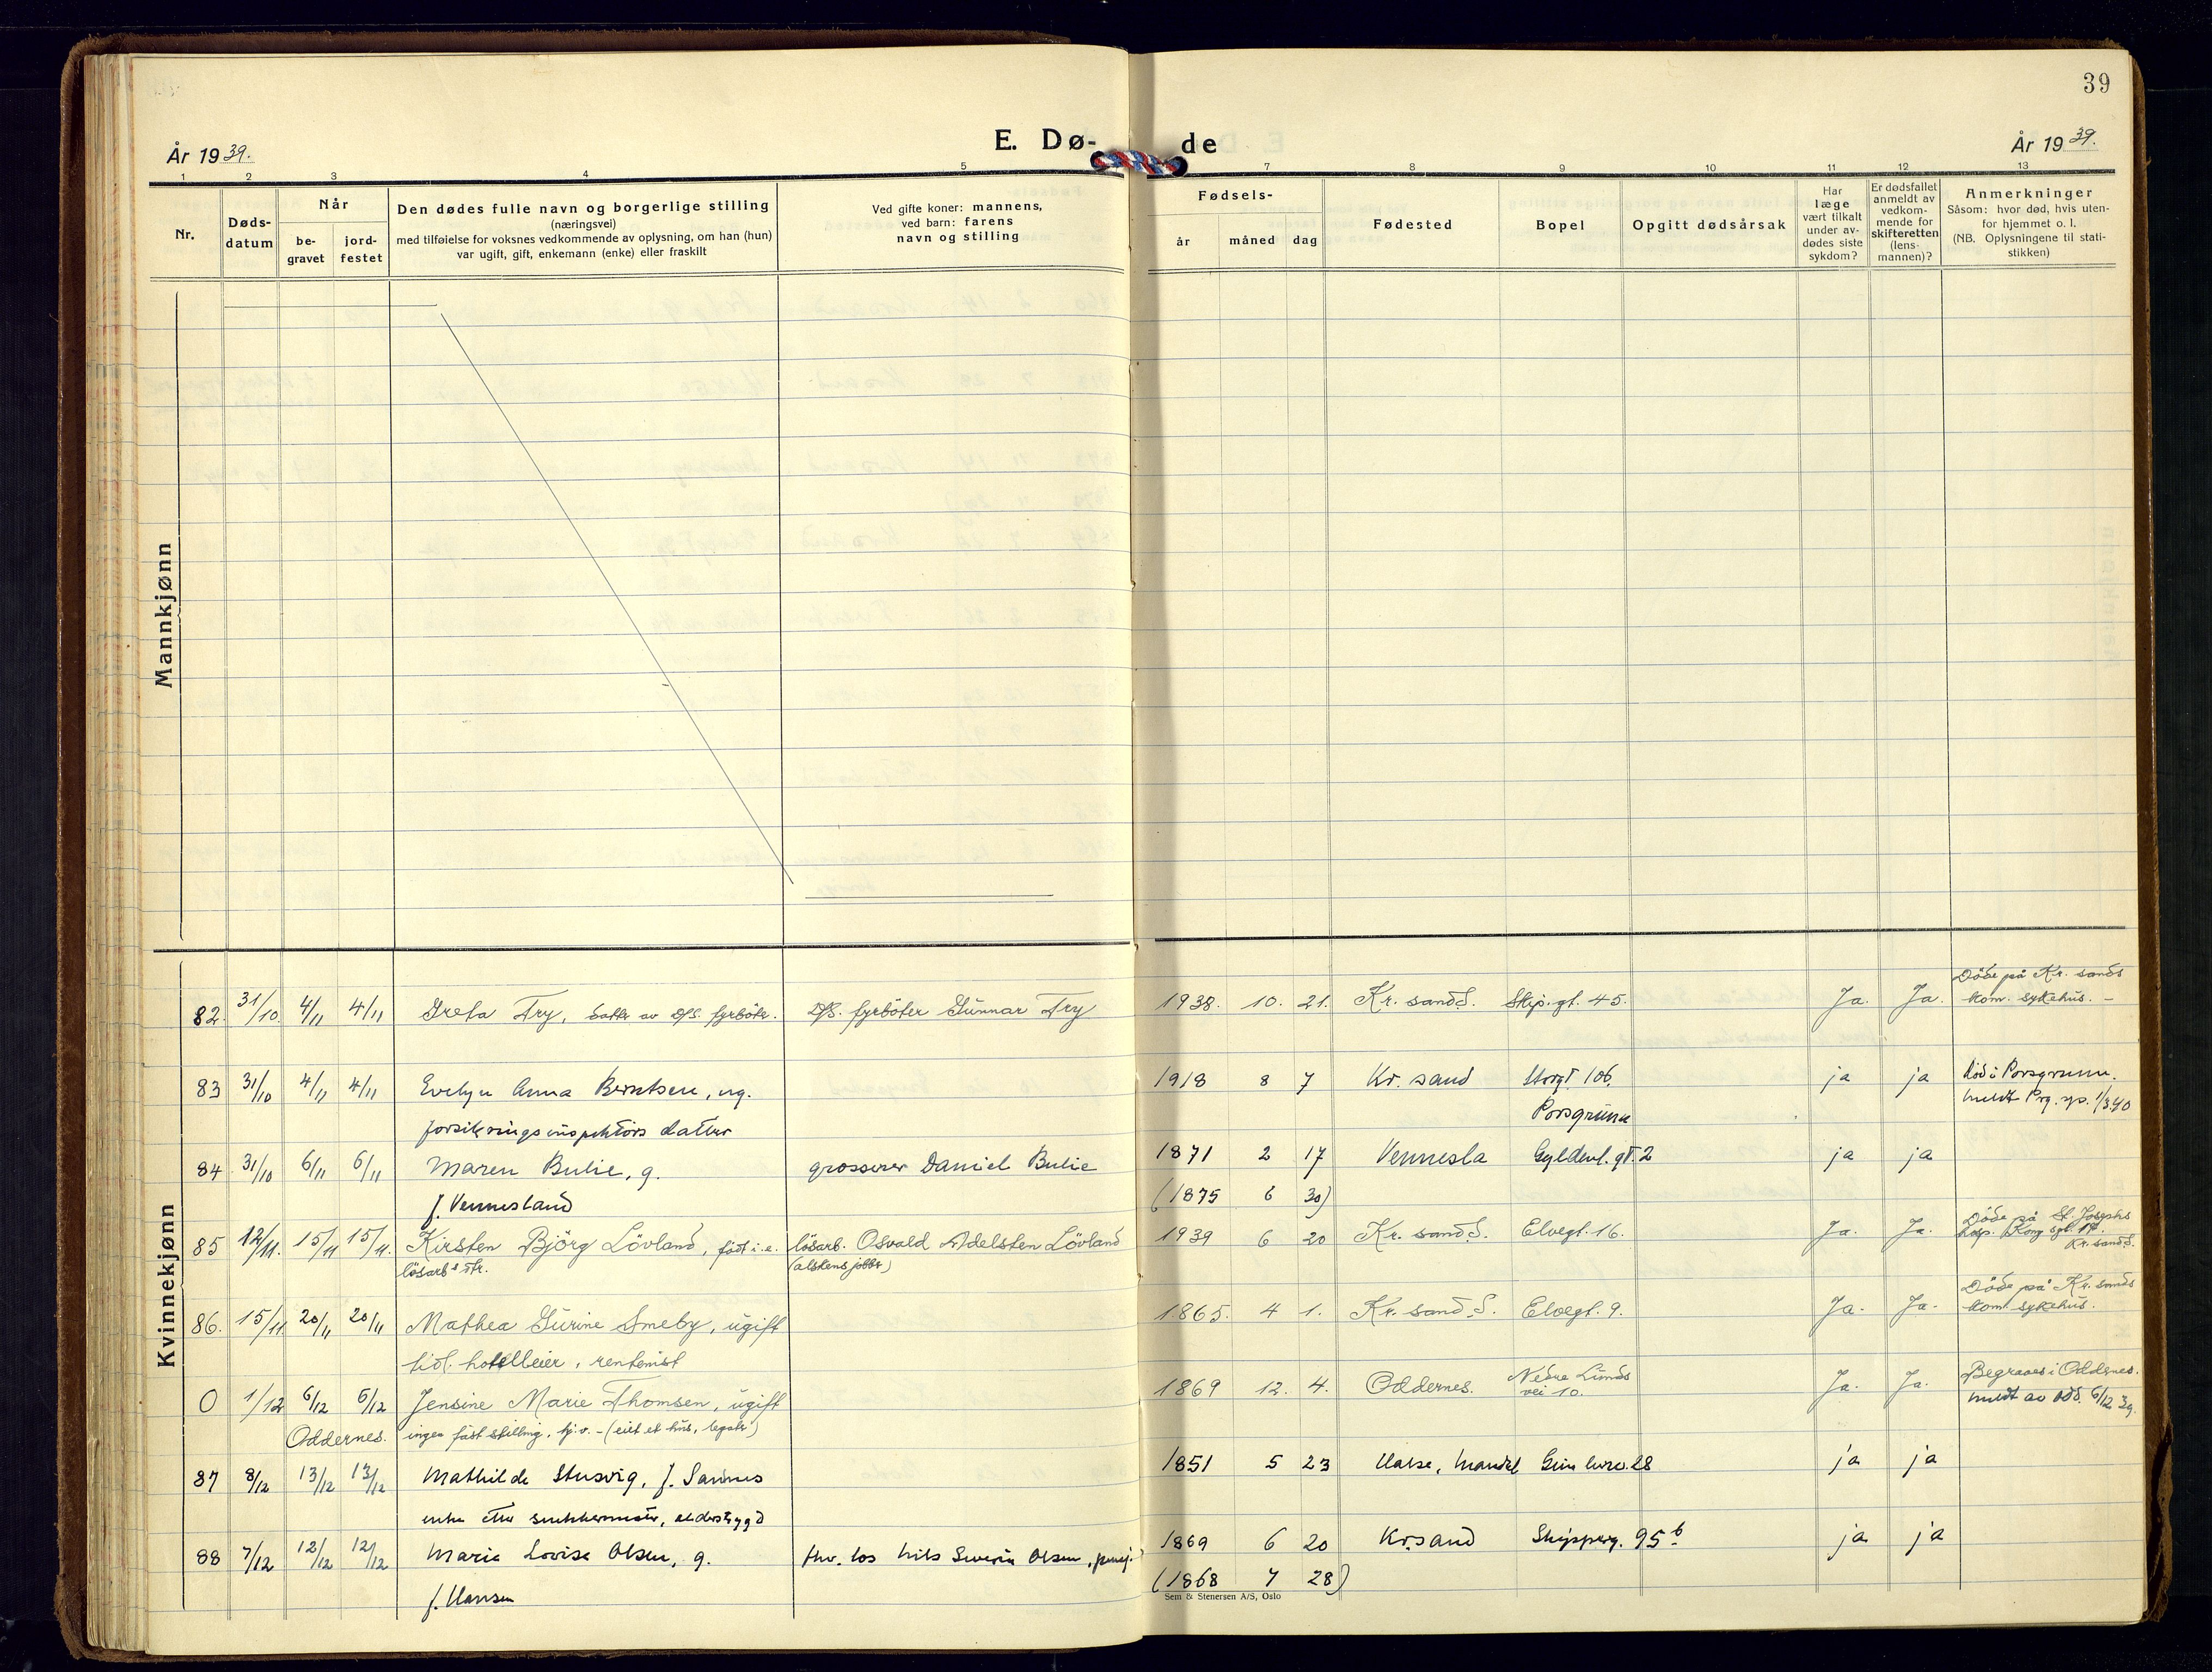 39
År 1939.
E. Dø-
de
År 1939.
1 2 3 4 5 7 8 9 10 11 12 13
Nr.
Døds-
datum
Når
be-
gravet
jord-
festet
Den dødes fulle navn og borgerlige stilling
(næringsvei)
med tilføielse for voksnes vedkommende av oplysning, om han (hun)
var ugift, gift, enkemann (enke) eller fraskilt
Ved gifte koner: mannens,
ved barn: farens
navn og stilling
Fødsels-
år måned dag
Fødested
Bopel
Opgitt dødsårsak
Har
læge
vært tilkalt
under av-
dødes siste
sykdom?
Er dødsfallet
anmeldt av
vedkom-
mende for
skifteretten
(lens-
mannen)?
Anmerkninger
Såsom: hvor død, hvis uten-
for hjemmet o. l.
(NB. Oplysningene til stati-
stikken)
Mannkjønn
Kvinnekjønn
82. 31/10 4/11 4/11 Greta Try, datter av D/S. fyrböter. D/S. fyrböter Gunnar Try 1938. 10. 21. Kr. sand S. Skip. gt. 45. Ja. Ja. Döde på Kr. sands
kom. sykehus. –
83 31/10 4/11 4/11 Evelyn Anna Berntsen, ug. 1918 8 7 Kr. sand Storgt 106. ja ja Död i Porsgrunn.
forsikringsinspektörs datter Porsgrunn meldt Prg. sp. 1/3 40
84 31/10 6/11 6/11 Maren Bulie, g. grosserer Daniel Bulie 1871 2 17 Vennesla Gyldenl. gt. 2 ja ja
f. Vennesland (1875 6 30)
85 12/11. 15/11 15/11. Kirsten Björg Lövland, født i. e. lösarb. Osvald Adelsten Lövland 1939 6 20 Kr. sand S. Elvegt. 16. Ja. Ja. Döde på St. Josephs
hosp. Kong sgt. 17
Kr. sand S.
lösarb's dtr. (alskens jobber)
86. 15/11 20/11 20/11 Mathea Gurine Smeby, ugift 1865. 4 1. Kr. sand S. Elvegt. 9. Ja. Ja. Döde på Kr. sands
kom. sykehus.
tidl. hotelleier, rentenist
0 1/12 6/12 6/12 Jensine Marie Thomsen, ugift 1869 12. 4. Oddernes. Nedre Lunds
vei 10. Ja. Ja. Begraves i Oddernes.
meldt av Odd. 6/12 39.
Oddernes. ingen fast stilling, hj. v. – (eiet et hus, legater)
87 8/12 13/12 13/12 Mathilde Stusvig, f. Sannes 1851 5 23 Halse, Mandal 28 ja ja
enke etter snekkermester, alderstrygd
88 7/12 12/12 12/12 Marie Lovise Olsen, g. fhv. los Nils Severin Olsen, pensj. 1869 6 20 Kr.sand Skipperg. 95b ja ja
f. Hansen (1868 7 28)
Sem & Stenersen A/S, Oslo